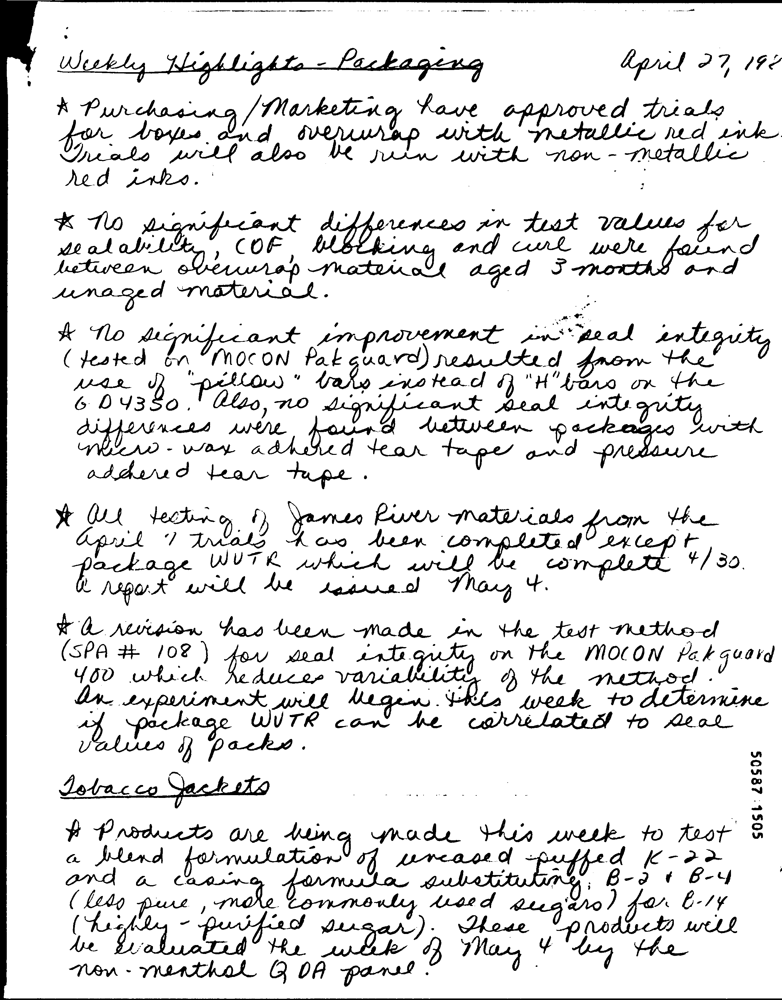 Weekly Highlights - Packaging April 27, 198
* Purchasing/Marketing have approved trials
for boxes and overwrap with metallic red ink.
Trials will also be run with non-metallic
red inks.
* No significant differences in test values for
sealability, COF, blocking and curl were found
between overwrap material aged 3 months and
unaged material.
* No significant improvement in seal integrity
(tested on MOCON Pakguard) resulted from the
use of "pillow" bars instead of "H" bars on the
GD4350. Also, no significant seal integrity
differences were found between packages with
micro-wax adhered tear tape and pressure
adhered tear tape.
* All testing of James River materials from the
April 7 trials has been completed except
package WVTR which will be complete 4/30.
A report will be issued May 4.
* A revision has been made in the test method
(SPA # 108) for seal integrity on the MOCON Pakguard
400 which reduces variability of the method.
An experiment will begin this week to determine
if package WVTR can be correlated to seal
values of packs.
Tobacco Jackets
* Products are being made this week to test
a blend formulation of uncased puffed K-22
and a casing formula substituting B-2 & B-4
(less pure, more commonly used sugars) for B-14
(highly-purified sugar). These products will
be evaluated the week of May 4 by the
non-menthol QDA panel.
50587 1505